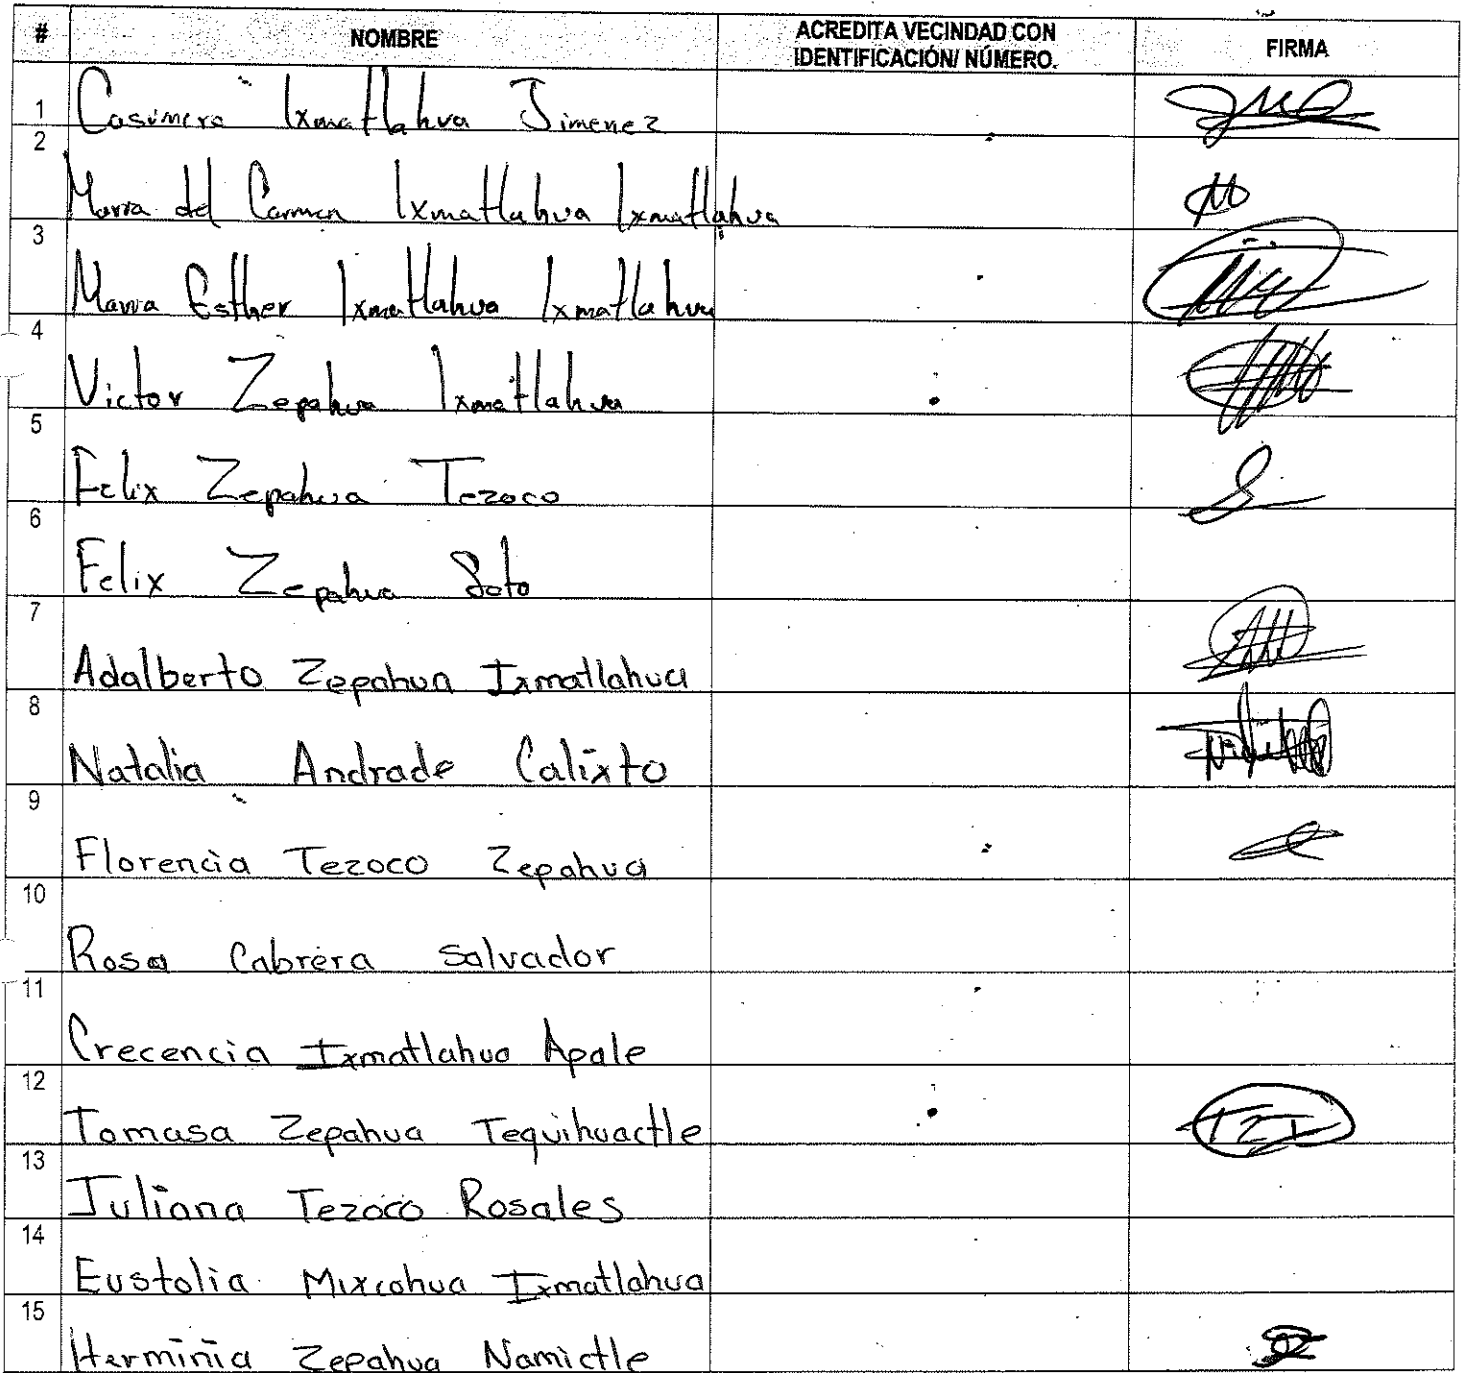 # NOMBRE ACREDITA VECINDAD CON IDENTIFICACIÓN/ NÚMERO. FIRMA
1 Casimira Ixmatlahua Jimenez
2 Maria del Carmen Ixmatlahua Ixmatlahua
3 Maria Esther Ixmatlahua Ixmatlahua
4 Victor Zepahua Ixmatlahua
5 Felix Zepahua Tezoco
6 Felix Zepahua Soto
7 Adalberto Zepahua Ixmatlahua
8 Natalia Andrade Calixto
9 Florencia Tezoco Zepahua
10 Rosa Cabrera Salvador
11 Crecencia Ixmatlahua Apale
12 Tomasa Zepahua Tequihuactle TZT
13 Juliana Tezoco Rosales
14 Eustolia Mixcohua Ixmatlahua
15 Herminia Zepahua Namictle